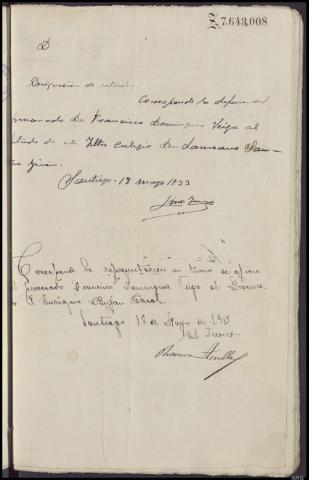 Z.7.643,008
D
Designación de letrado;
Corresponde la defensa del
procesado Dn Francisco Dominguez Veiga al
letrado de este Iltre Colegio Dn Laureano San-
Santiago - 18 mayo 1933
Corresponde la representación en turno de oficio
procesado Francisco Dominguez Veiga al Procura-
D. Enrique Casal.
Santiago 18 de Mayo de 1933
Ramon